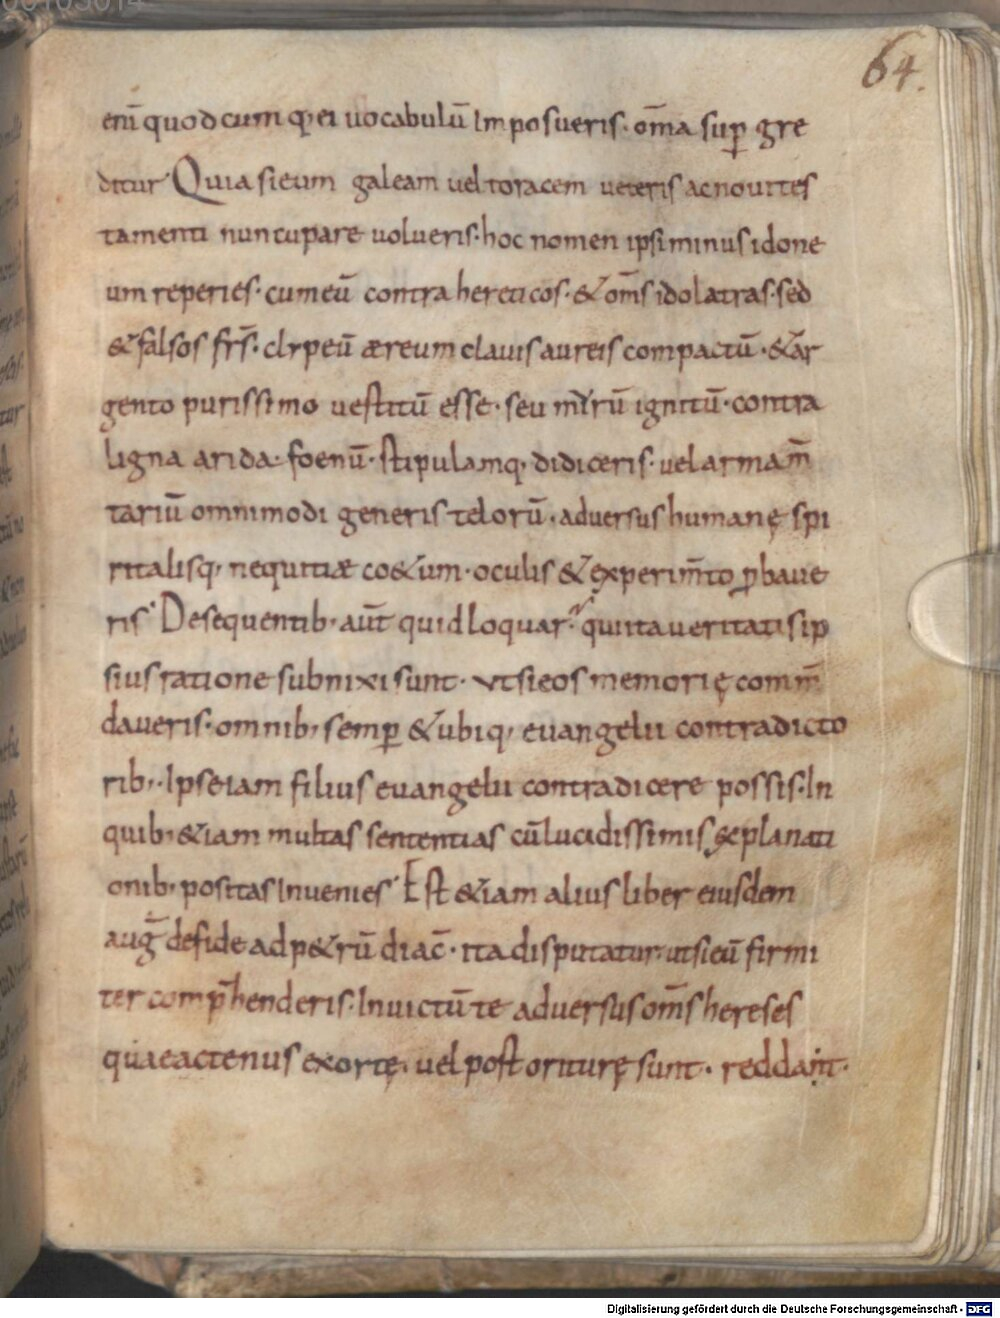 64.
eni̅ quodcumq; ei vocabulu̅ Imposueris· om̅a sup̲ gre
ditur Quia si eum galeam vel toracem veteris ac noui tes
tamenti nuncupare volueris· hoc nomen ipsi minus idone
um reperies· cum eu̅ contra hereticos· & om̅s idolatras· sed
& falsos fr̅s· clypeu̅ æreum clauis aureis compactu̅· & ar
gento purissimo vestitu̅ esse· seu muru̅ ignitu̅· contra
ligna arida· foenu̅· stipulamq; didiceris· vel armam̅
tariu̅ omnimodi generis teloru̅· adversus humanę spi
ritalisq; nequitiæ co&um· oculis & experim̅to p̲baue
ris Desequentib; aut̅ quid loquar· qui ita veritatis ip
sius ratione subnixi sunt· vt si eos memorię comm̅
daveris· omnib; semp̲ & ubiq; euangelii contradicto
rib;· Ipse iam filius euangelii contradicere possis· In
quib; &iam multas sententias cu̅ lucidissimis explanati
onib; positas Invenies Est &iam alius liber eiusdem
aug̅ de fide ad p&ru̅ diac̅· ita disputatur· ut si eu̅ firmi
ter comp̅henderis· Invictu̅ te adversus om̅s hereses
quae actenus exortę· vel post oriturę sunt· reddant·
Digitalisierung gefördert durch die Deutsche Forschungsgemeinschaft - DFG